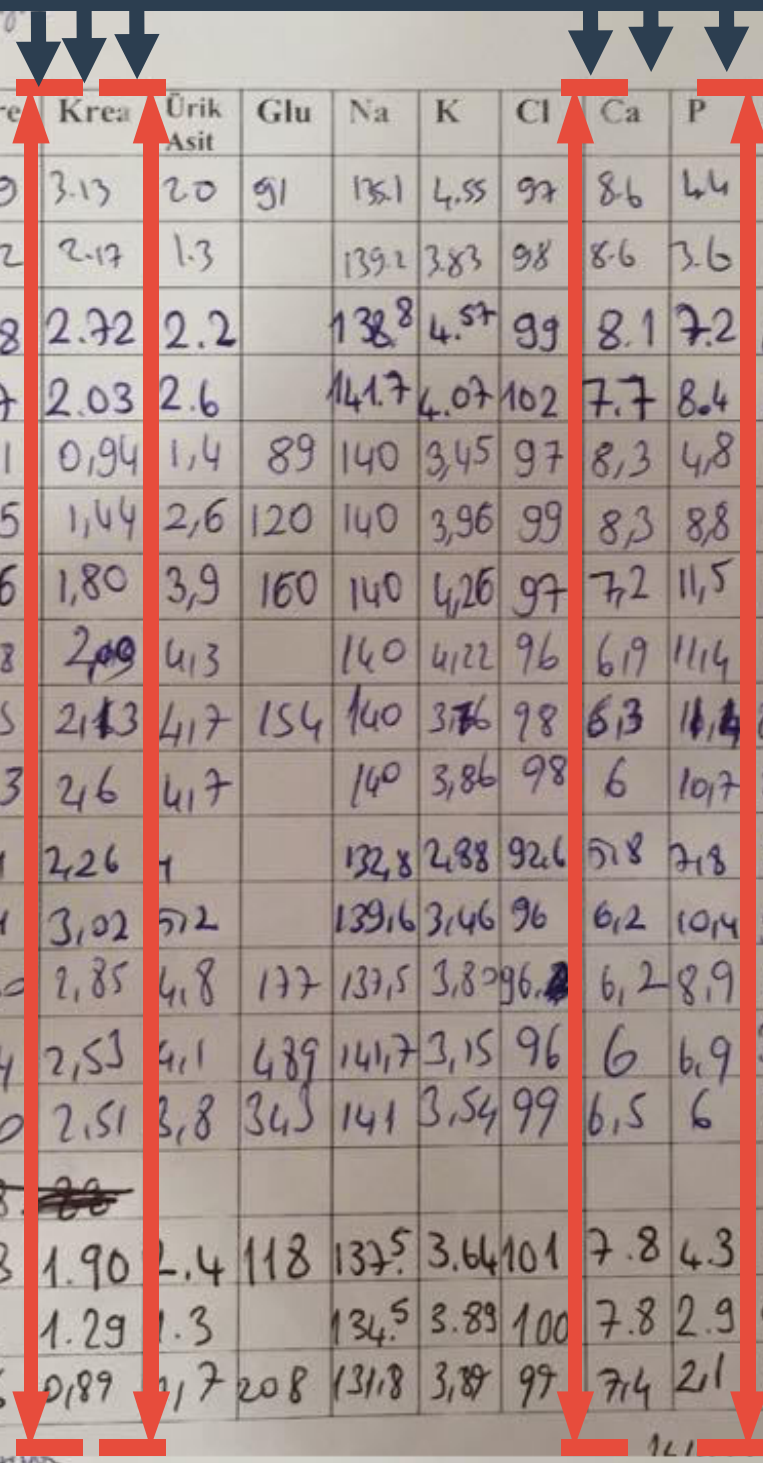 Krea Ürik Asit Glu Na K Cl Ca P
3.13 20 91 135.1 4.55 97 8.6 4.4
2.17 1.3 139.2 3.83 98 8.6 3.6
2.72 2.2 138.8 4.57 99 8.1 7.2
2.03 2.6 141.7 4.07 102 7.7 8.4
0,94 1,4 89 140 3,45 97 8,3 4,8
1,44 2,6 120 140 3,96 99 8,3 8,8
1,80 3,9 160 140 4,26 97 7,2 11,5
4,3 140 4,22 96 6,9 11,4
2,13 4,7 154 140 3,76 98 6,3 11,4
2,6 4,7 140 3,86 98 6 10,7
2,26 132,8 2,88 92,6 5,8 7,8
3,02 5,2 139,6 3,46 96 6,2 10,4
2,85 4,8 177 137,5 3,80 96. 6,2 8,9
2,53 4,1 489 141,7 3,15 96 6 6,9
2,51 3,8 343 141 3,54 99 6,5 6
1.90 2.4 118 137.5 3.64 101 7.8 4.3
1.29 1.3 134.5 3.89 100 7.8 2.9
0,89 1,7 208 131,8 99 7,4 2,1